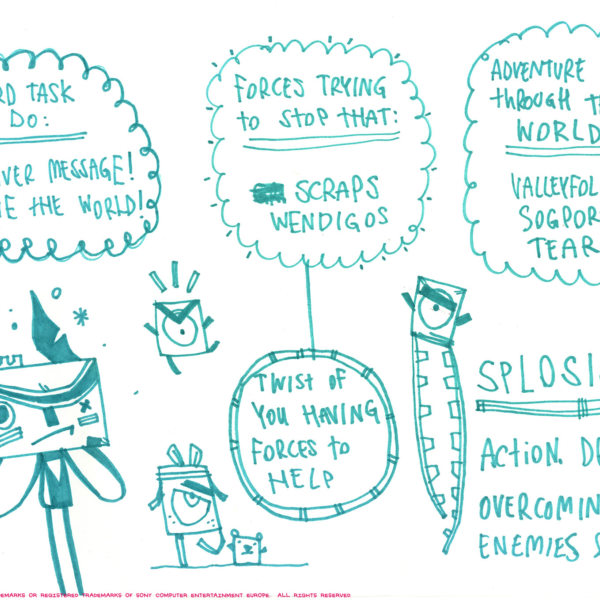 RD TASK
DO:
VER MESSAGE!
E THE WORLD!
FORCES TRYING
to STOP THAT:
SCRAPS
WENDIGOS
ADVENTURE
through t
WORLD
VALLEYFOL
SOGPOR
TEAR
TWIST OF
YOU HAVING
FORCES to
HELP
SPLOSI
ACTION. D
OVERCOMIN
ENEMIES S
EMARKS OR REGISTERED TRADEMARKS OF SONY COMPUTER ENTERTAINMENT EUROPE. ALL RIGHTS RESERVED.